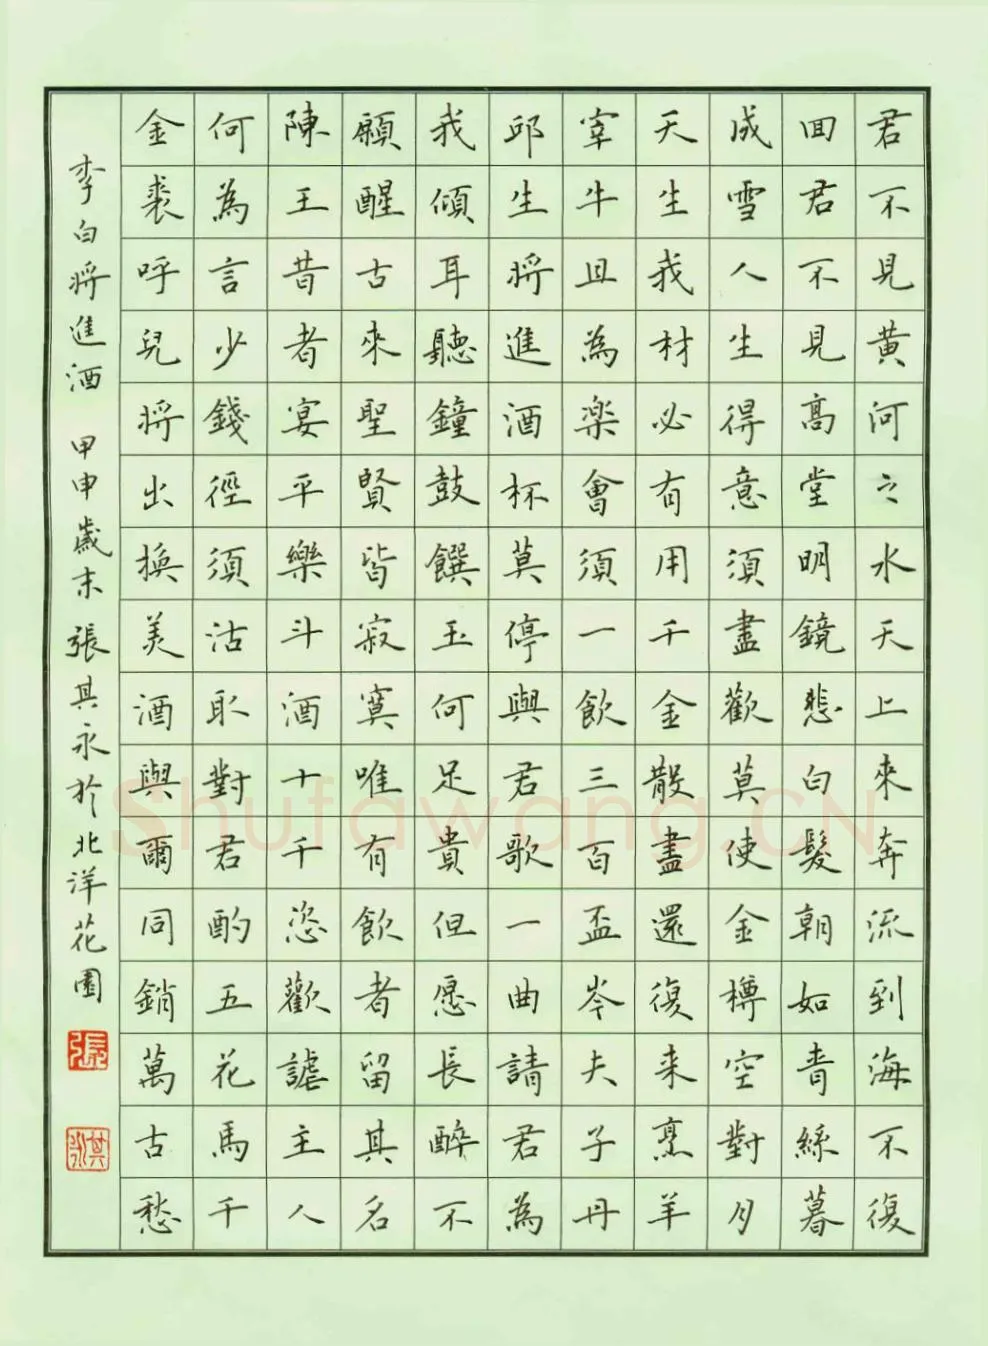 君不見黃河之水天上來奔流到海不復
回君不見高堂明鏡悲白髮朝如青絲暮
成雪人生得意須盡歡莫使金樽空對月
天生我材必有用千金散盡還復来烹羊
宰牛且為楽會須一飲三百盃岑夫子丹
邱生將進酒杯莫停與君歌一曲請君為
我傾耳聽鐘鼓饌玉何足貴但愿長醉不
願醒古來聖賢皆寂寞唯有飲者留其名
陳王昔者宴平樂斗酒十千恣歡謔主人
何為言少錢徑須沽取對君酌五花馬千
金裘呼兒將出換美酒與爾同銷萬古愁
李白將進酒 甲申歲末張其永於北洋花園
張
其永
Shufawang.CN